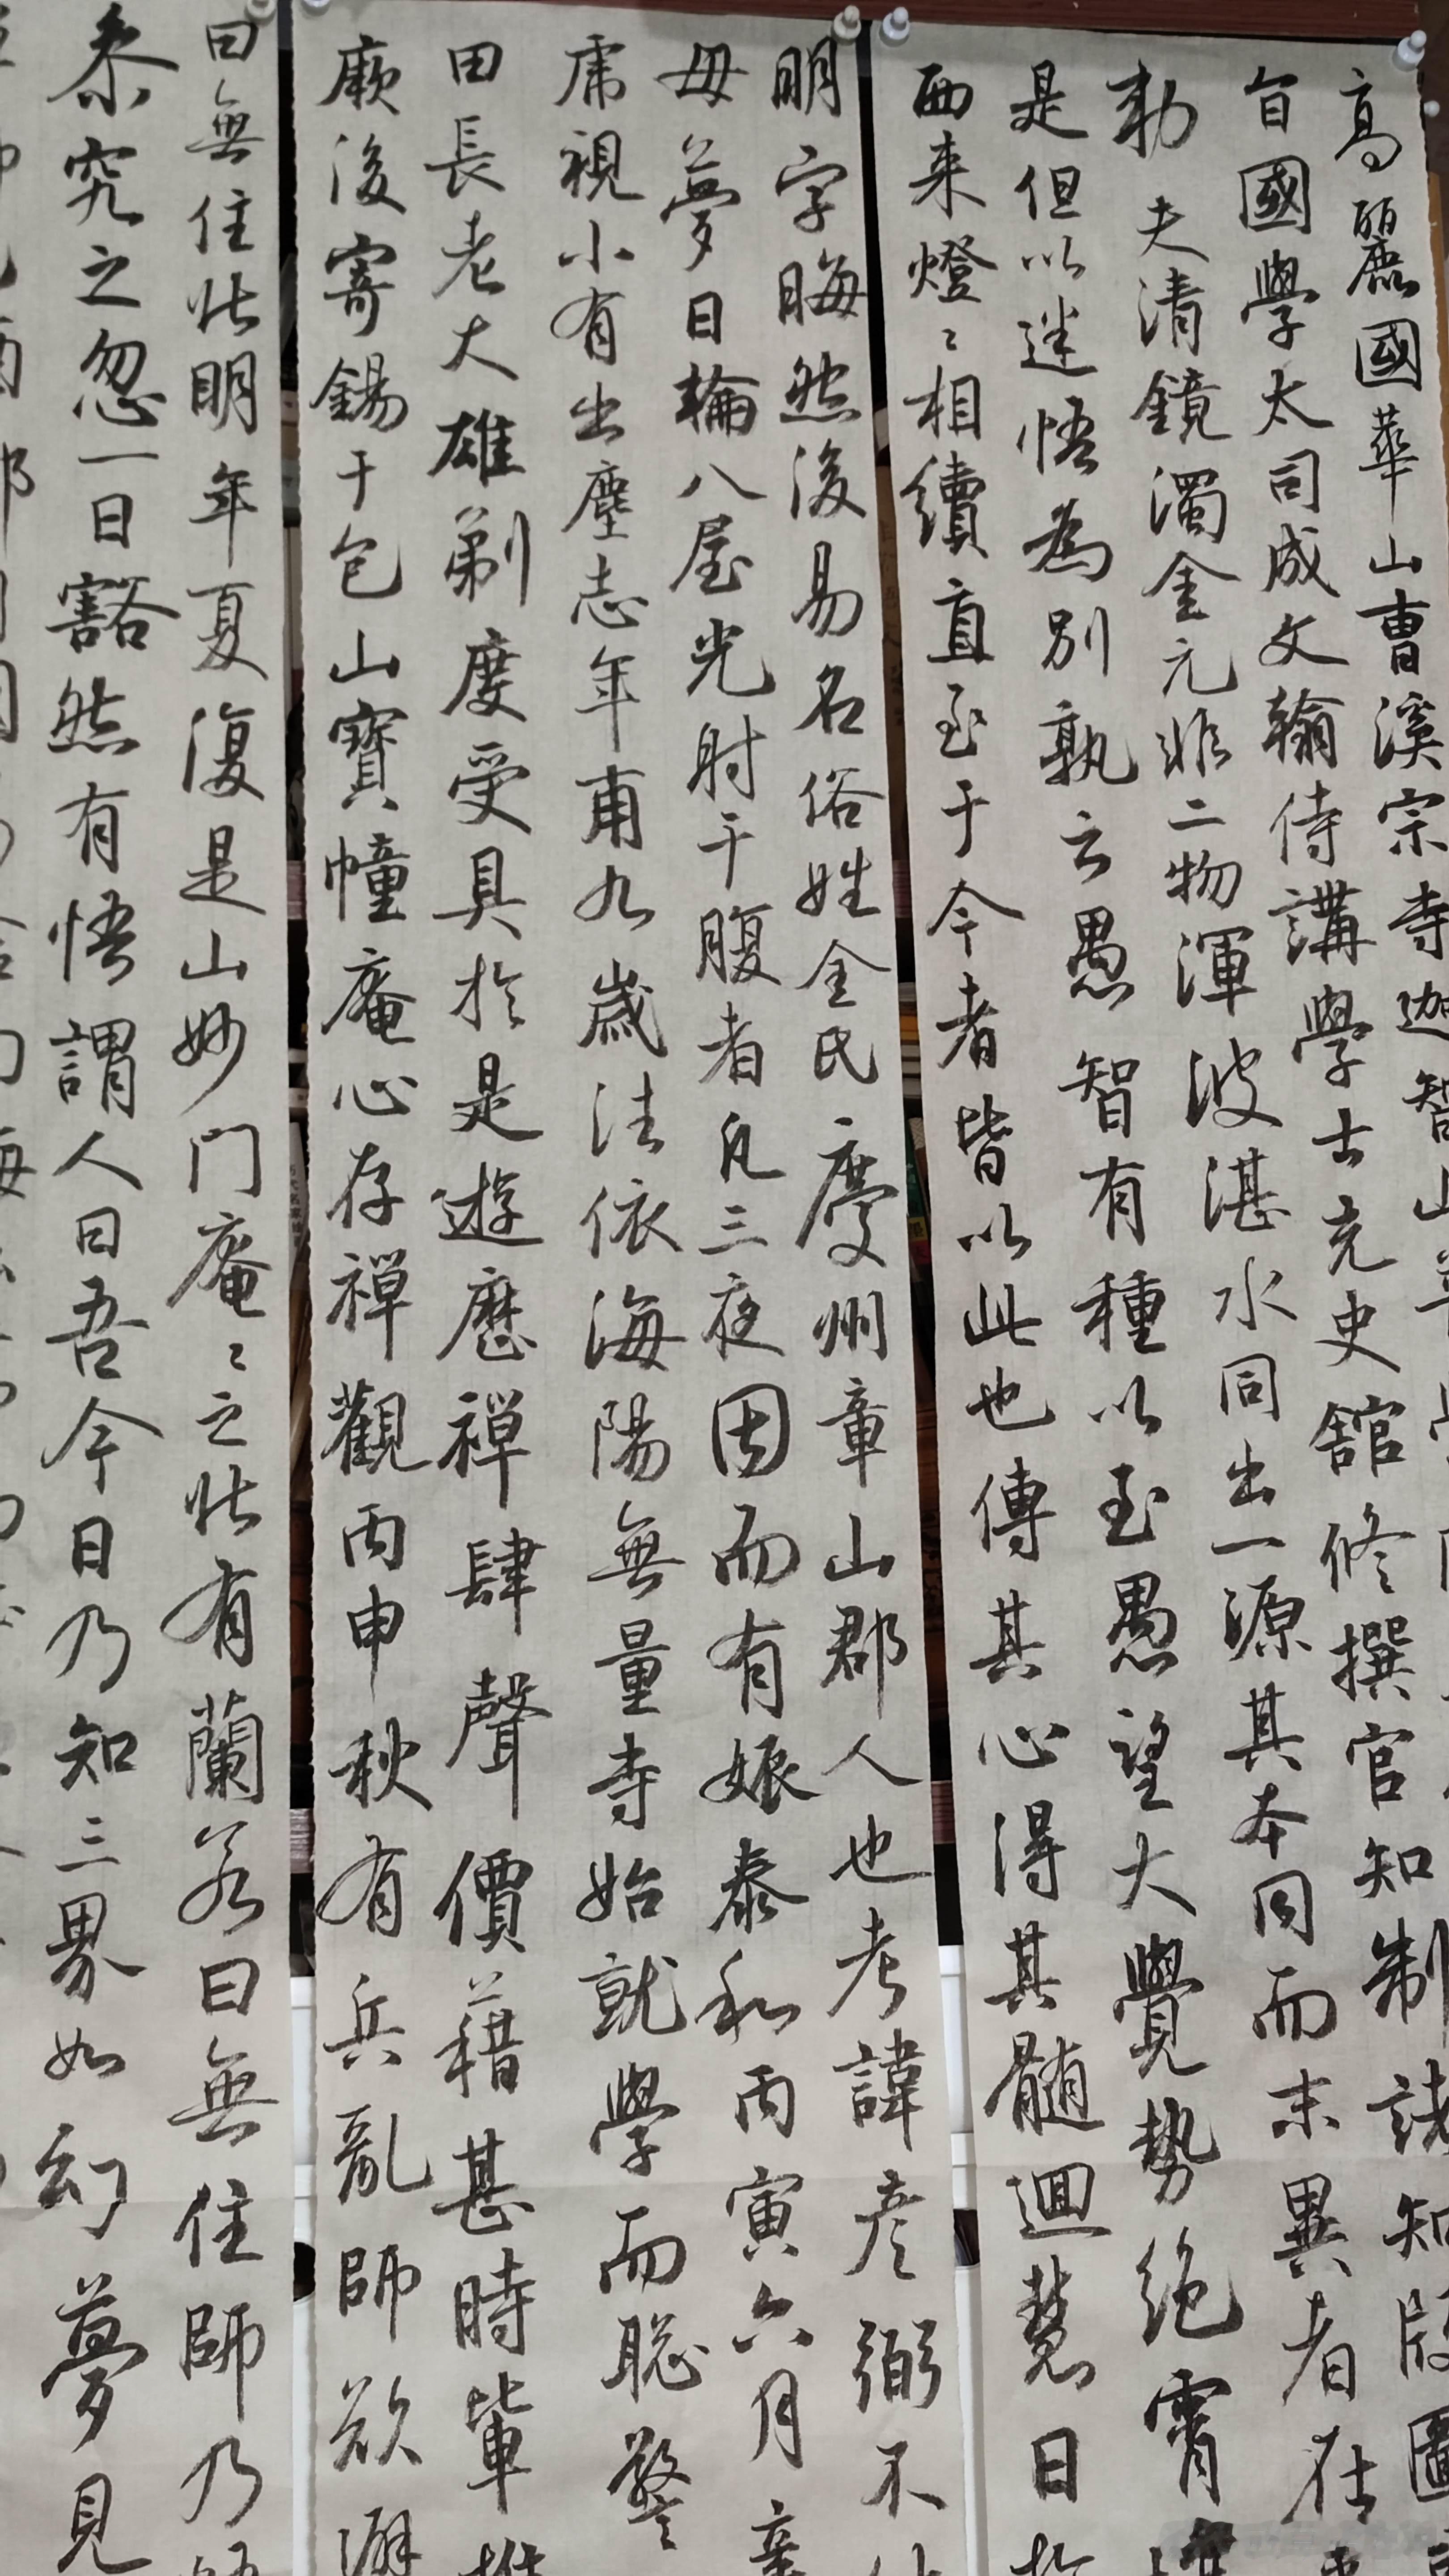 高麗國華山曹溪宗寺迦智山
旨國學太司成文翰侍講學士充史舘修撰官知制誥知版圖
勅 夫清鏡濁金元非二物渾波湛水同出一源其本同而末異者在
是但以迷悟為別孰云愚智有種以至愚望大覺勢絶霄
西来燈〻相續直至于今者皆以此也傳其心得其髄迴慧日
明字晦然後易名俗姓金氏慶州章山郡人也考諱彦弼不
毋夢日輪入屋光射于腹者凡三夜因而有娠泰和丙寅六月
席視小有出塵志年甫九歳往依海陽無量寺始就學而聡警
田長老大雄剃度受具於是遊歷禅肆聲價藉甚時輩推
厥後寄錫于包山寶幢庵心存禅觀丙申秋有兵亂師欲避
曰無住北明年夏復是山妙门庵〻之北有蘭若曰無住師乃
叅究之忽一日豁然有悟謂人曰吾今日乃知三界如幻夢見